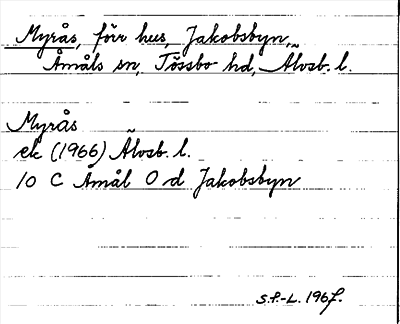 Myrås, förr hus, Jakobsbyn,
Åmåls sn, Tössbo hd, Älvsb. l.
Myrås
ek (1966) Älvsb. l.
10 C Åmål O d Jakobsbyn
S.F.-L. 1967.